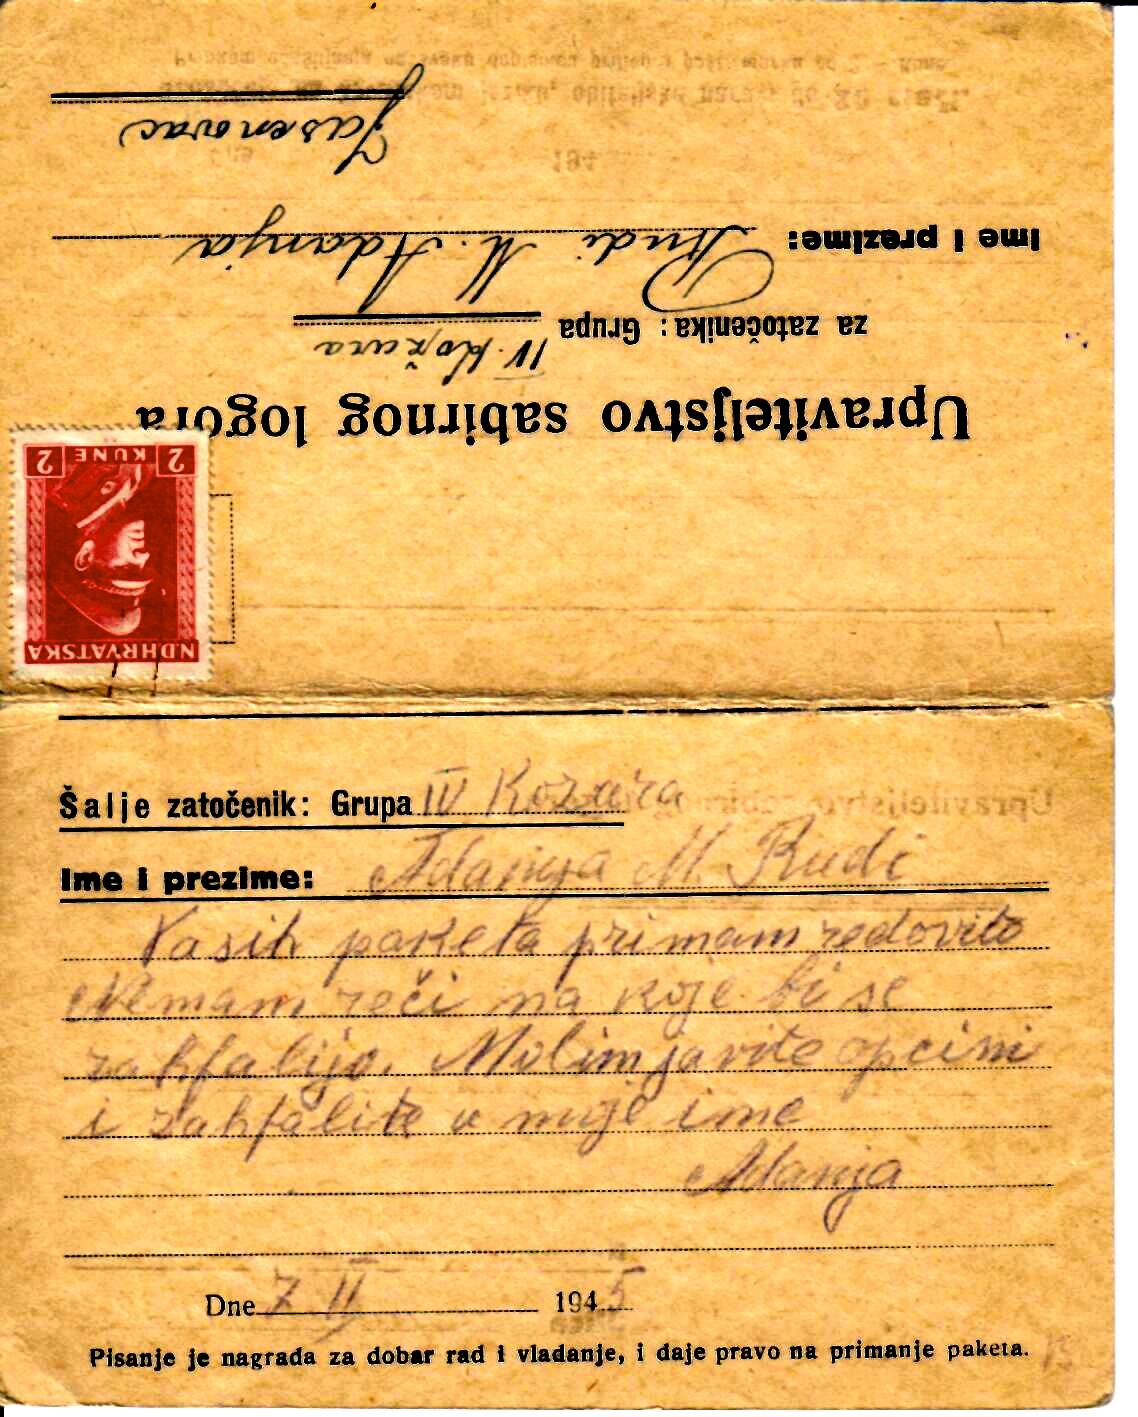 Upraviteljstvo sabirnog logora
za zatočenika: Grupa IV. Kožara
Ime i prezime: Rudi M. Adanja
Jasenovac
2 KUNE 2
N.D.HRVATSKA
Šalje zatočenik: Grupa IV Kozara
Ime i prezime: Adanja M. Rudi
Vasih paketa primam redovito
Nemam reči na koje bi se
zahfalijo. Molim javite opcini
i zahfalite u moje ime
Adanja
Dne 7 II 1945
Pisanje je nagrada za dobar rad i vladanje, i daje pravo na primanje paketa.